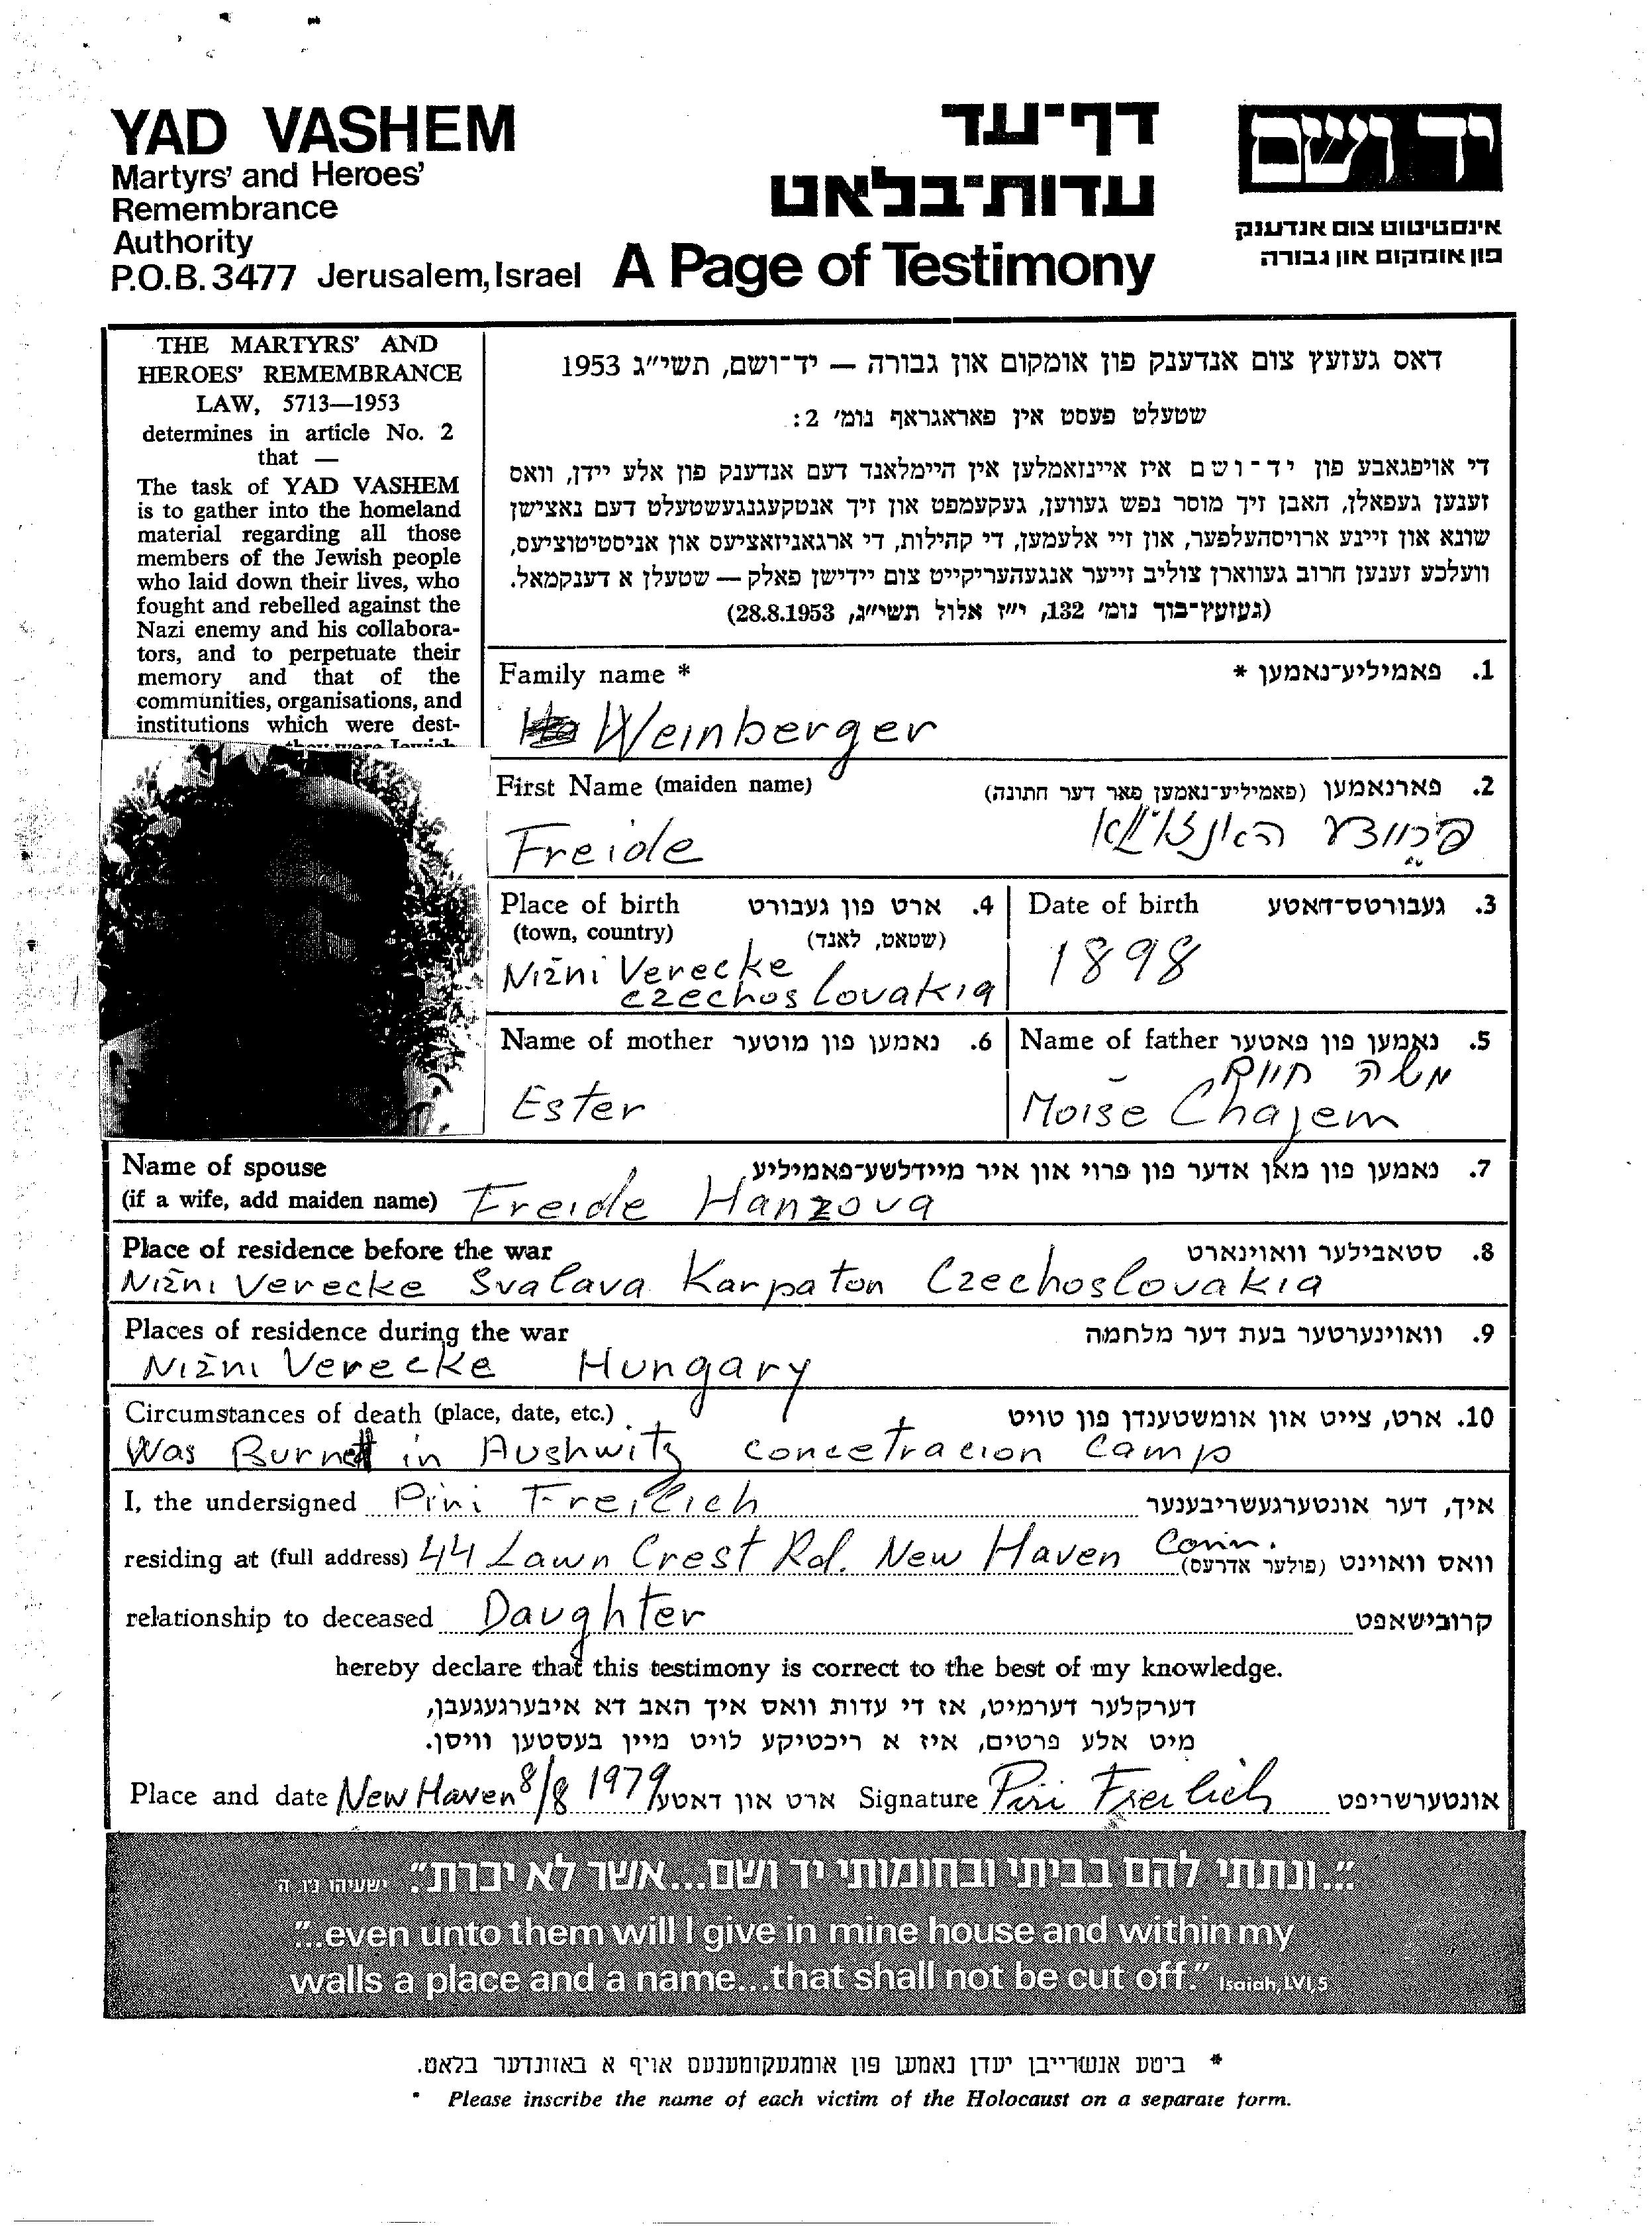 YAD VASHEM
Martyrs' and Heroes'
Remembrance
Authority
P.O.B. 3477 Jerusalem, Israel
דף-עד
עדות-בלאט
A Page of Testimony
יד ושם
אינסטיטוט צום אנדענק
פון אומקום און גבורה
THE MARTYRS' AND
HEROES' REMEMBRANCE
LAW, 5713—1953
determines in article No. 2
that —
The task of YAD VASHEM
is to gather into the homeland
material regarding all those
members of the Jewish people
who laid down their lives, who
fought and rebelled against the
Nazi enemy and his collabora-
tors, and to perpetuate their
memory and that of the
communities, organisations, and
institutions which were dest-
דאס געזעץ צום אנדענק פון אומקום און גבורה — יד-ושם, תשי"ג 1953
שטעלט פעסט אין פאראגראף נומ' 2:
די אויפגאבע פון יד-ושם איז איינזאמלען אין היימלאנד דעם אנדענק פון אלע יידן, וואס
זענען געפאלן, האבן זיך מוסר נפש געווען, געקעמפט און זיך אנטקעגנגעשטעלט דעם נאצישן
שונא און זיינע ארויסהעלפער, און זיי אלעמען, די קהילות, די ארגאניזאציעס און אניסטיטוציעס,
וועלכע זענען חרוב געווארן צוליב זייער אנגעהעריקייט צום יידישן פאלק — שטעלן א דענקמאל.
(געזעץ-בוך נומ' 132, י"ז אלול תשי"ג, 28.8.1953)
Family name * פאמיליע-נאמען * .1
Weinberger
First Name (maiden name) פארנאמען (פאמיליע-נאמען פאר דער חתונה) .2
Freide
Place of birth ארט פון געבורט .4
(town, country) (שטאט, לאנד)
Nižni Verecke
czechoslovakia
Date of birth געבורטס-דאטע .3
1898
Name of mother נאמען פון מוטער .6
Ester
Name of father נאמען פון פאטער .5
משה חיים
Moise Chajem
Name of spouse נאמען פון מאן אדער פון פרוי און איר מיידלשע-פאמיליע .7
(if a wife, add maiden name) Freide Hanzova
Place of residence before the war סטאבילער וואוינארט .8
Nižni Verecke Svalava Karpaton Czechoslovakia
Places of residence during the war וואוינערטער בעת דער מלחמה .9
Nižni Verecke Hungary
Circumstances of death (place, date, etc.) ארט, צייט און אומשטענדן פון טויט .10
Was Burned in Aushwitz concetracion camp
I, the undersigned Piri Freilich איך, דער אונטערגעשריבענער
residing at (full address) 44 Lawn Crest Rd. New Haven Conn. וואס וואוינט (פולער אדרעס)
relationship to deceased Daughter קרובישאפט
hereby declare that this testimony is correct to the best of my knowledge.
דערקלער דערמיט, אז די עדות וואס איך האב דא איבערגעגעבן,
מיט אלע פרטים, איז א ריכטיקע לויט מיין בעסטען וויסן.
Place and date New Haven 8/8 1979 ארט און דאטע Signature Piri Freilich אונטערשריפט
"...ונתתי להם בביתי ובחומותי יד ושם...אשר לא יכרת". ישעיהו נ"ו, ה'
"...even unto them will I give in mine house and within my
walls a place and a name...that shall not be cut off." Isaiah, LVI, 5
* ביטע אנשרייבן יעדן נאמען פון אומגעקומענעם אויף א באזונדער בלאט.
* Please inscribe the name of each victim of the Holocaust on a separate form.